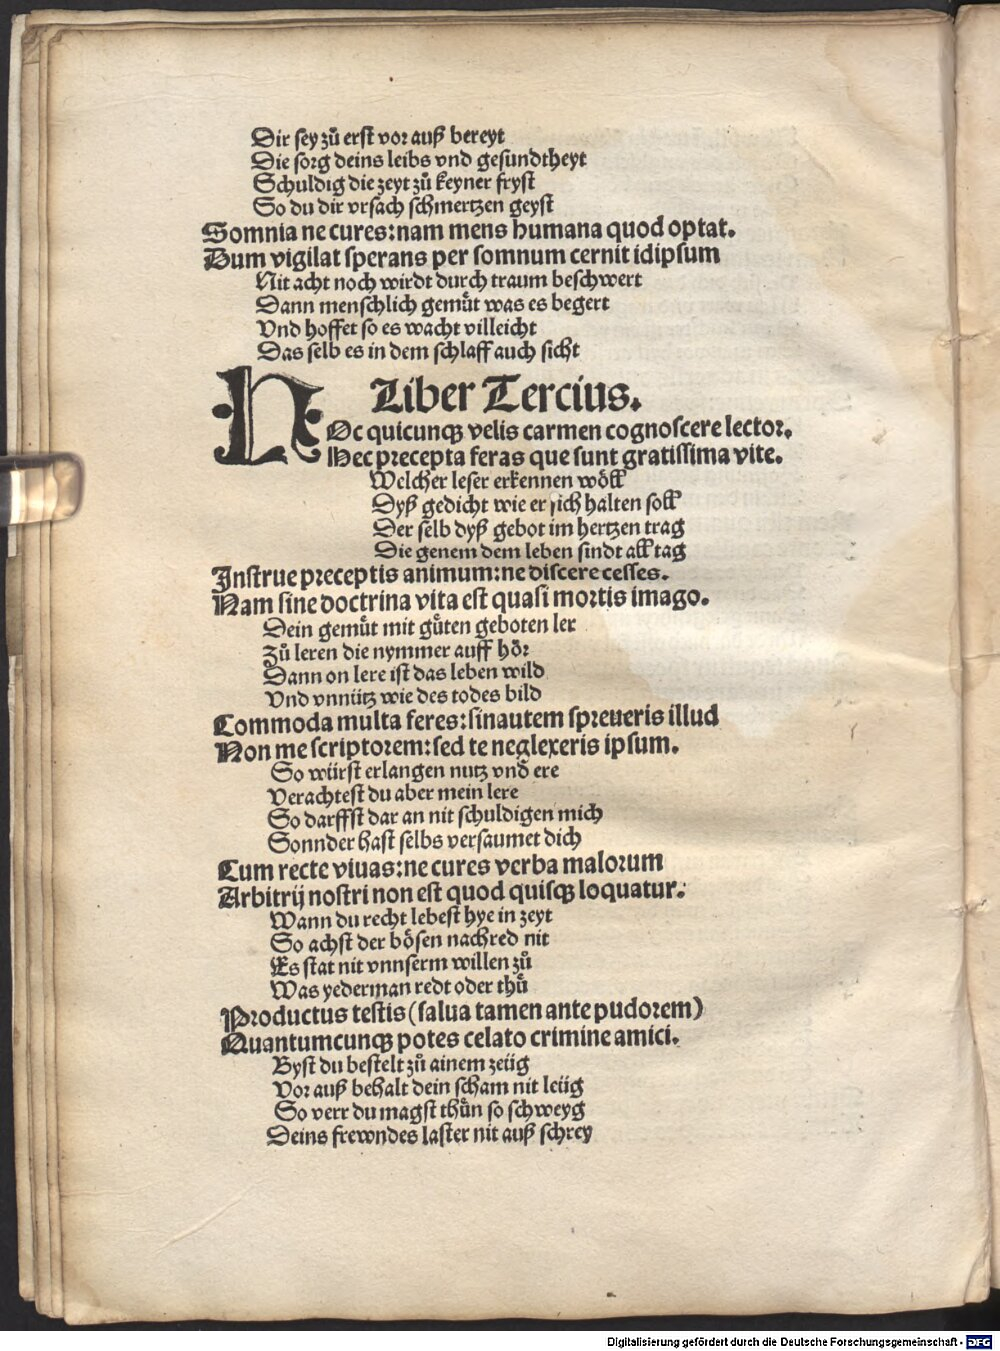 Dir sey zů erst vor auß bereyt
Die sorg deins leibs vnd gesundtheyt
Schuldig die zeyt zů keyner fryst
So du dir vrsach schmertzen geyst
Somnia ne cures:nam mens humana quod optat.
Dum vigilat sperans per somnum cernit idipsum
Nit acht noch wirdt durch traum beschwert
Dann menschlich gemůt was es begert
Vnd hoffet so es wacht villeicht
Das selb es in dem schlaff auch sicht
Liber Tercius.
HOc quicunqꝫ velis carmen cognoscere lector.
Hec precepta feras que sunt gratissima vite.
Welcher leser erkennen wöll
Dyß gedicht wie er sich halten soll
Der selb dyß gebot im hertzen trag
Die genem dem leben sindt all tag
Instrue preceptis animum:ne discere cesses.
Nam sine doctrina vita est quasi mortis imago.
Dein gemůt mit gůten geboten ler
Zů leren die nymmer auff hör
Dann on lere ist das leben wild
Vnd vnnütz wie des todes bild
Commoda multa feres:sinautem spreueris illud
Non me scriptorem:sed te neglexeris ipsum.
So würst erlangen nutz vnd ere
Verachtest du aber mein lere
So darffst dar an nit schuldigen mich
Sonnder hast selbs versaumet dich
Cum recte viuas:ne cures verba malorum
Arbitrij nostri non est quod quisqꝫ loquatur.
Wann du recht lebest hye in zeyt
So achst der bösen nachred nit
Es stat nit vnnserm willen zů
Was yederman redt oder thů
Productus testis(salua tamen ante pudorem)
Quantumcunqꝫ potes celato crimine amici.
Byst du bestelt zů ainem zeüg
Vor auß behalt dein scham nit leüg
So verr du magst thůn so schweyg
Deins frewndes laster nit auß schrey
Digitalisierung gefördert durch die Deutsche Forschungsgemeinschaft - DFG